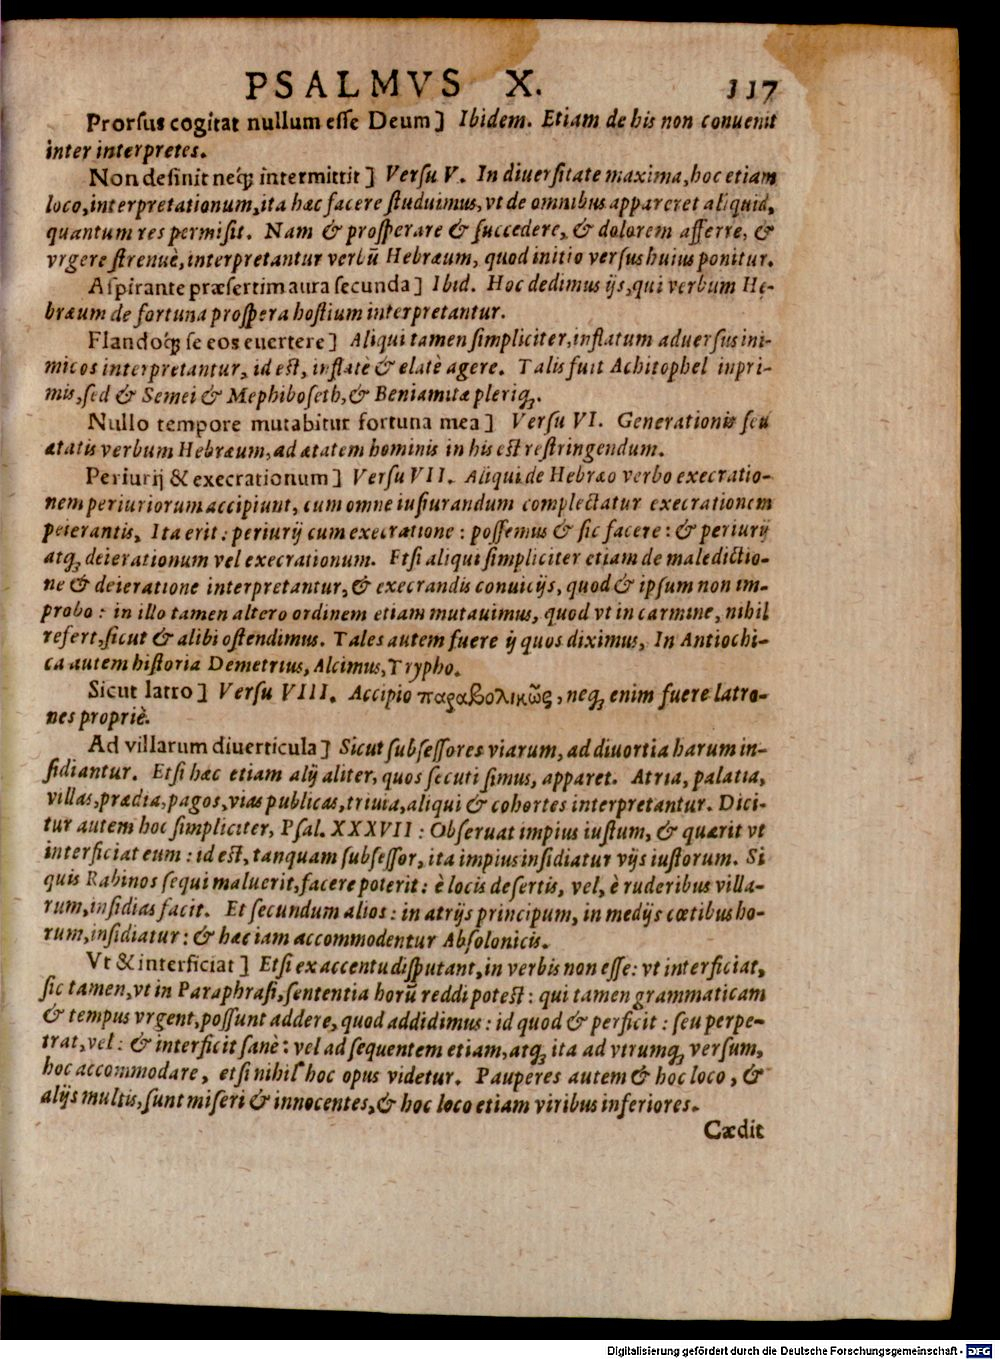 PSALMVS X. 117
Prorſus cogitat nullum eſſe Deum] Ibidem. Etiam de his non conuenit
inter interpretes.
Non deſinit neq́; intermittit] Verſu V. In diuerſitate maxima, hoc etiam
loco, interpretationum, ita hæc facere ſtuduimus, vt de omnibus appareret aliquid,
quantum res permiſit. Nam & proſperare & ſuccedere, & dolorem afferre, &
vrgere ſtrenuè, interpretantur verbū Hebræum, quod initio verſus huius ponitur.
Aſpirante præſertim aura ſecunda] Ibid. Hoc dedimus ijs, qui verbum He-
bræum de fortuna proſpera hoſtium interpretantur.
Flandoq́; ſe eos euertere] Aliqui tamen ſimpliciter, inflatum aduerſus ini-
micos interpretantur, id eſt, inflatè & elatè agere. Talis fuit Achitophel inpri-
mis, ſed & Semei & Mephiboſeth, & Beniamitæ pleriq;.
Nullo tempore mutabitur fortuna mea] Verſu VI. Generationis ſeu
ætatis verbum Hebræum, ad ætatem hominis in his eſt reſtringendum.
Periurij & execrationum] Verſu VII. Aliqui de Hebræo verbo execratio-
nem periuriorum accipiunt, cum omne iuſiurandum complectatur execrationem
peierantis. Ita erit: periurij cum execratione: poſſemus & ſic facere: & periurij
atq; deierationum vel execrationum. Etſi aliqui ſimpliciter etiam de maledictio-
ne & deieratione interpretantur, & execrandis conuicijs, quod & ipſum non im-
probo: in illo tamen altero ordinem etiam mutauimus, quod vt in carmine, nihil
refert, ſicut & alibi oſtendimus. Tales autem fuere ij quos diximus, In Antiochi-
ca autem hiſtoria Demetrius, Alcimus, Trypho.
Sicut latro] Verſu VIII. Accipio παραβολικῶς, neq; enim fuere latro-
nes propriè.
Ad villarum diuerticula] Sicut ſubſeſſores viarum, ad diuortia harum in-
ſidiantur. Etſi hæc etiam alij aliter, quos ſecuti ſimus, apparet. Atria, palatia,
villas, prædia, pagos, vias publicas, triuia, aliqui & cohortes interpretantur. Dici-
tur autem hoc ſimpliciter, Pſal. XXXVII: Obſeruat impius iuſtum, & quærit vt
interficiat eum: id eſt, tanquam ſubſeſſor, ita impius inſidiatur vijs iuſtorum. Si
quis Rabinos ſequi maluerit, facere poterit: è locis deſertis, vel, è ruderibus villa-
rum, inſidias facit. Et ſecundum alios: in atrijs principum, in medijs cœtibus ho-
rum, inſidiatur: & hæc iam accommodentur Abſolonicis.
Vt & interficiat] Etſi ex accentu diſputant, in verbis non eſſe: vt interficiat,
ſic tamen, vt in Paraphraſi, ſententia horū reddi poteſt: qui tamen grammaticam
& tempus vrgent, poſſunt addere, quod addidimus: id quod & perficit: ſeu perpe-
trat, vel: & interficit ſanè: vel ad ſequentem etiam, atq; ita ad vtrumq; verſum,
hoc accommodare, etſi nihil hoc opus videtur. Pauperes autem & hoc loco, &
alijs multis, ſunt miſeri & innocentes, & hoc loco etiam viribus inferiores.
Cædit
Digitalisierung gefördert durch die Deutsche Forschungsgemeinschaft - DFG